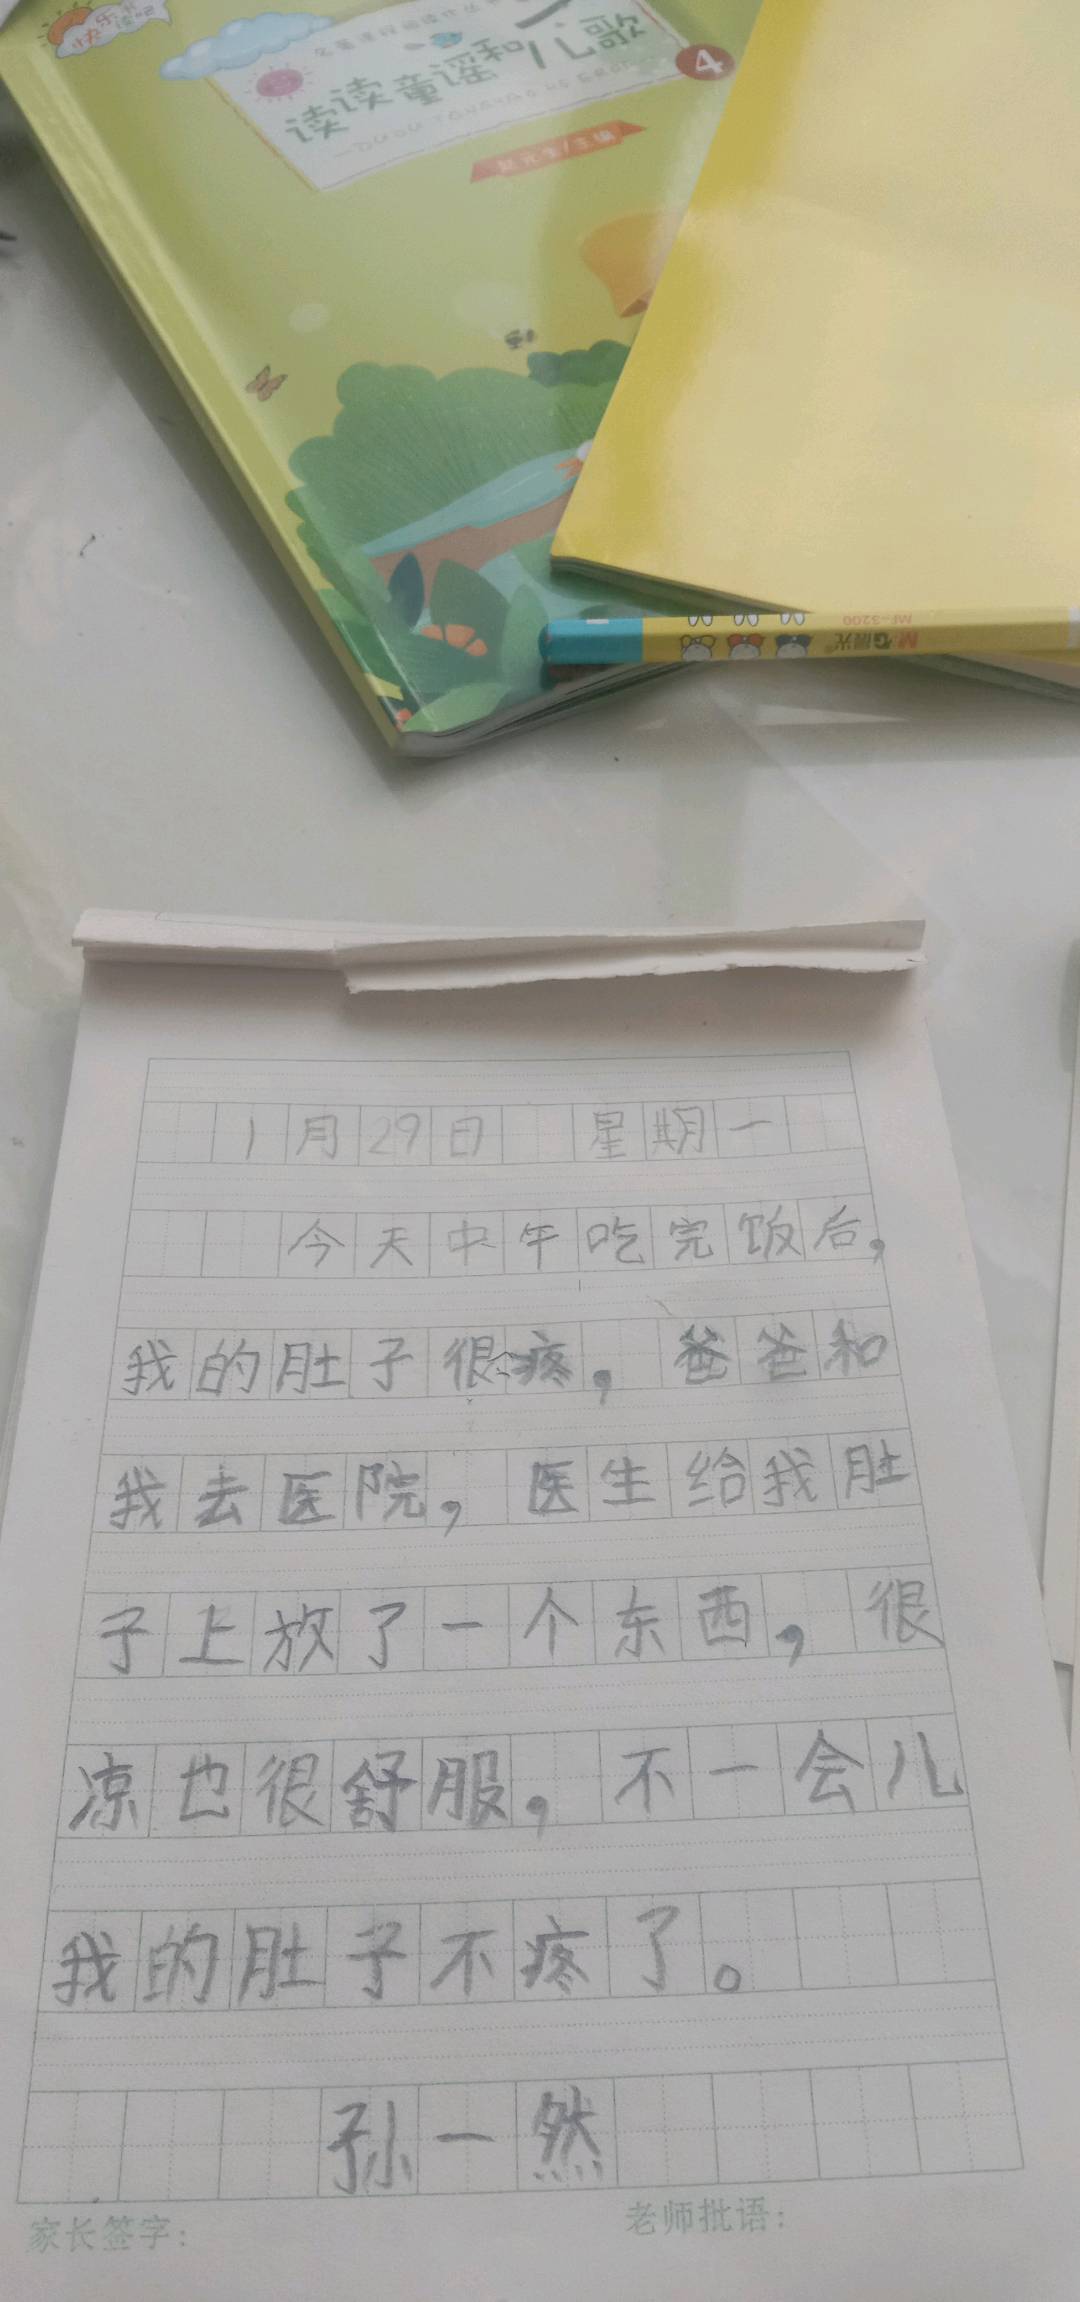 快乐读书吧
读读童谣和儿歌
4
赵元生/主编
MF-3200
M&G晨光
1月29日 星期一
今天中午吃完饭后,
我的肚子很疼, 爸爸和
我去医院, 医生给我肚
子上放了一个东西, 很
凉也很舒服, 不一会儿
我的肚子不疼了。
孙一然
家长签字:
老师批语: